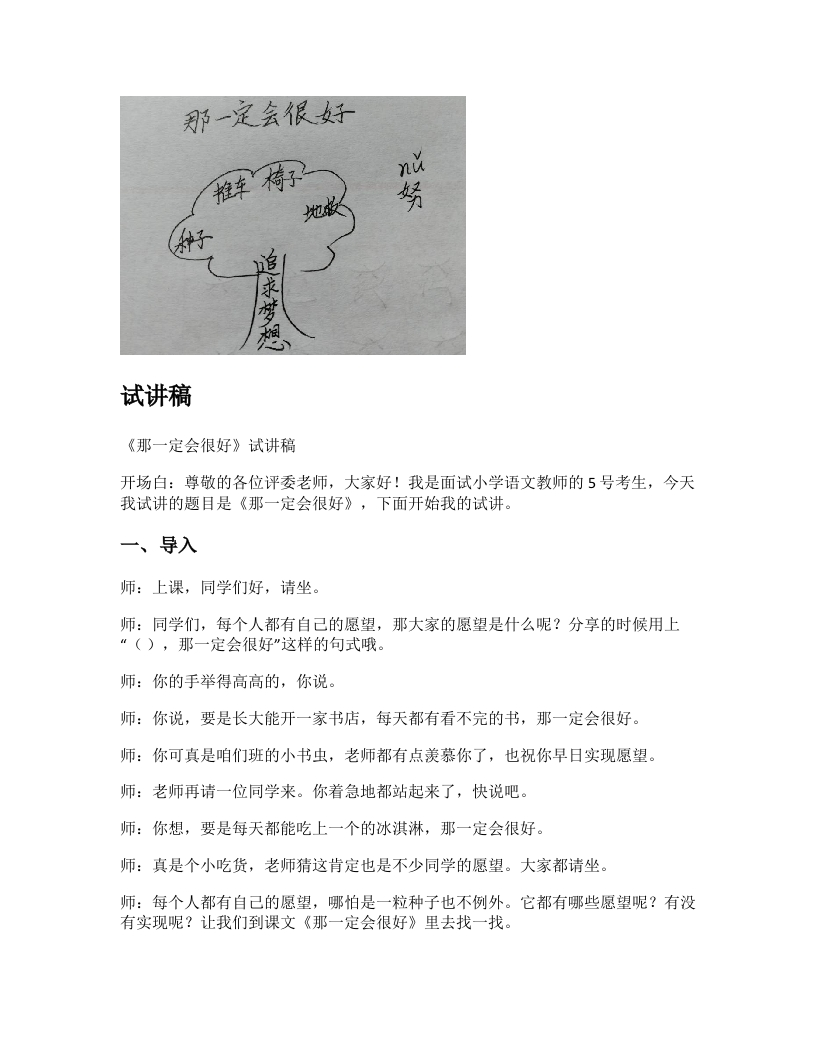 那一定会很好
nǔ
努
推车 椅子
地板
种子
追求梦想
试讲稿
《那一定会很好》试讲稿
开场白：尊敬的各位评委老师，大家好！我是面试小学语文教师的 5 号考生，今天
我试讲的题目是《那一定会很好》，下面开始我的试讲。
一、导入
师：上课，同学们好，请坐。
师：同学们，每个人都有自己的愿望，那大家的愿望是什么呢？分享的时候用上
“（ ），那一定会很好”这样的句式哦。
师：你的手举得高高的，你说。
师：你说，要是长大能开一家书店，每天都有看不完的书，那一定会很好。
师：你可真是咱们班的小书虫，老师都有点羡慕你了，也祝你早日实现愿望。
师：老师再请一位同学来。你着急地都站起来了，快说吧。
师：你想，要是每天都能吃上一个的冰淇淋，那一定会很好。
师：真是个小吃货，老师猜这肯定也是不少同学的愿望。大家都请坐。
师：每个人都有自己的愿望，哪怕是一粒种子也不例外。它都有哪些愿望呢？有没
有实现呢？让我们到课文《那一定会很好》里去找一找。